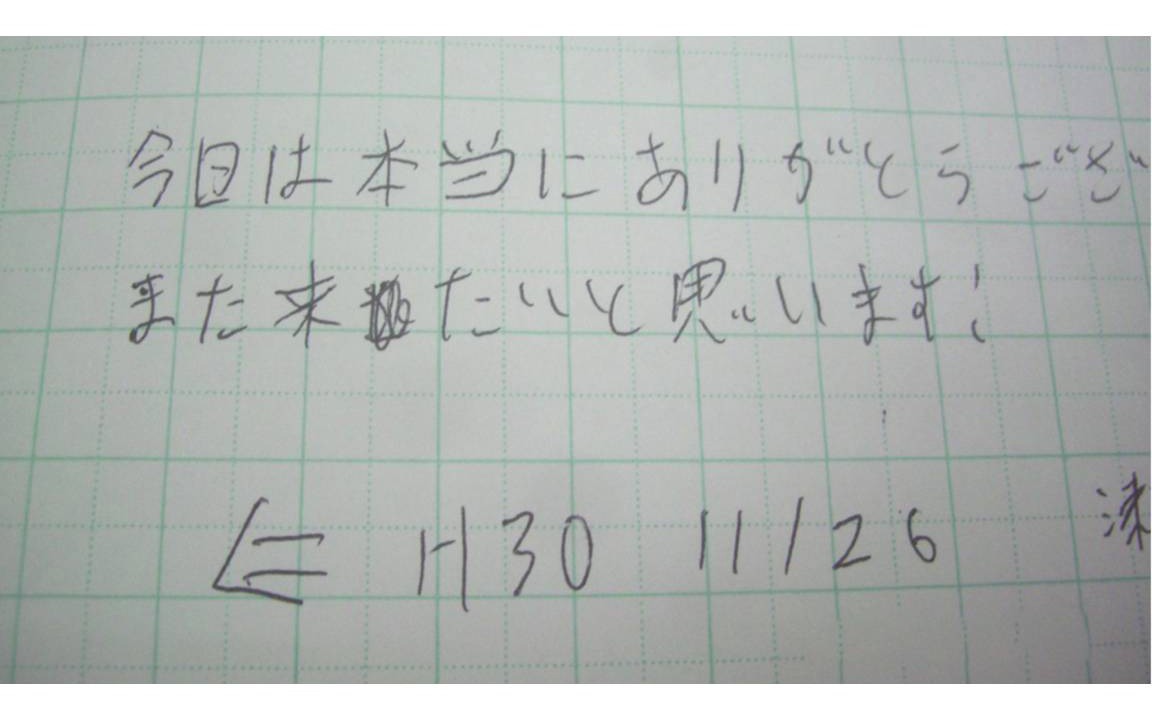 今日は本当にありがとうござ
また来たいと思います!
H30 11/26